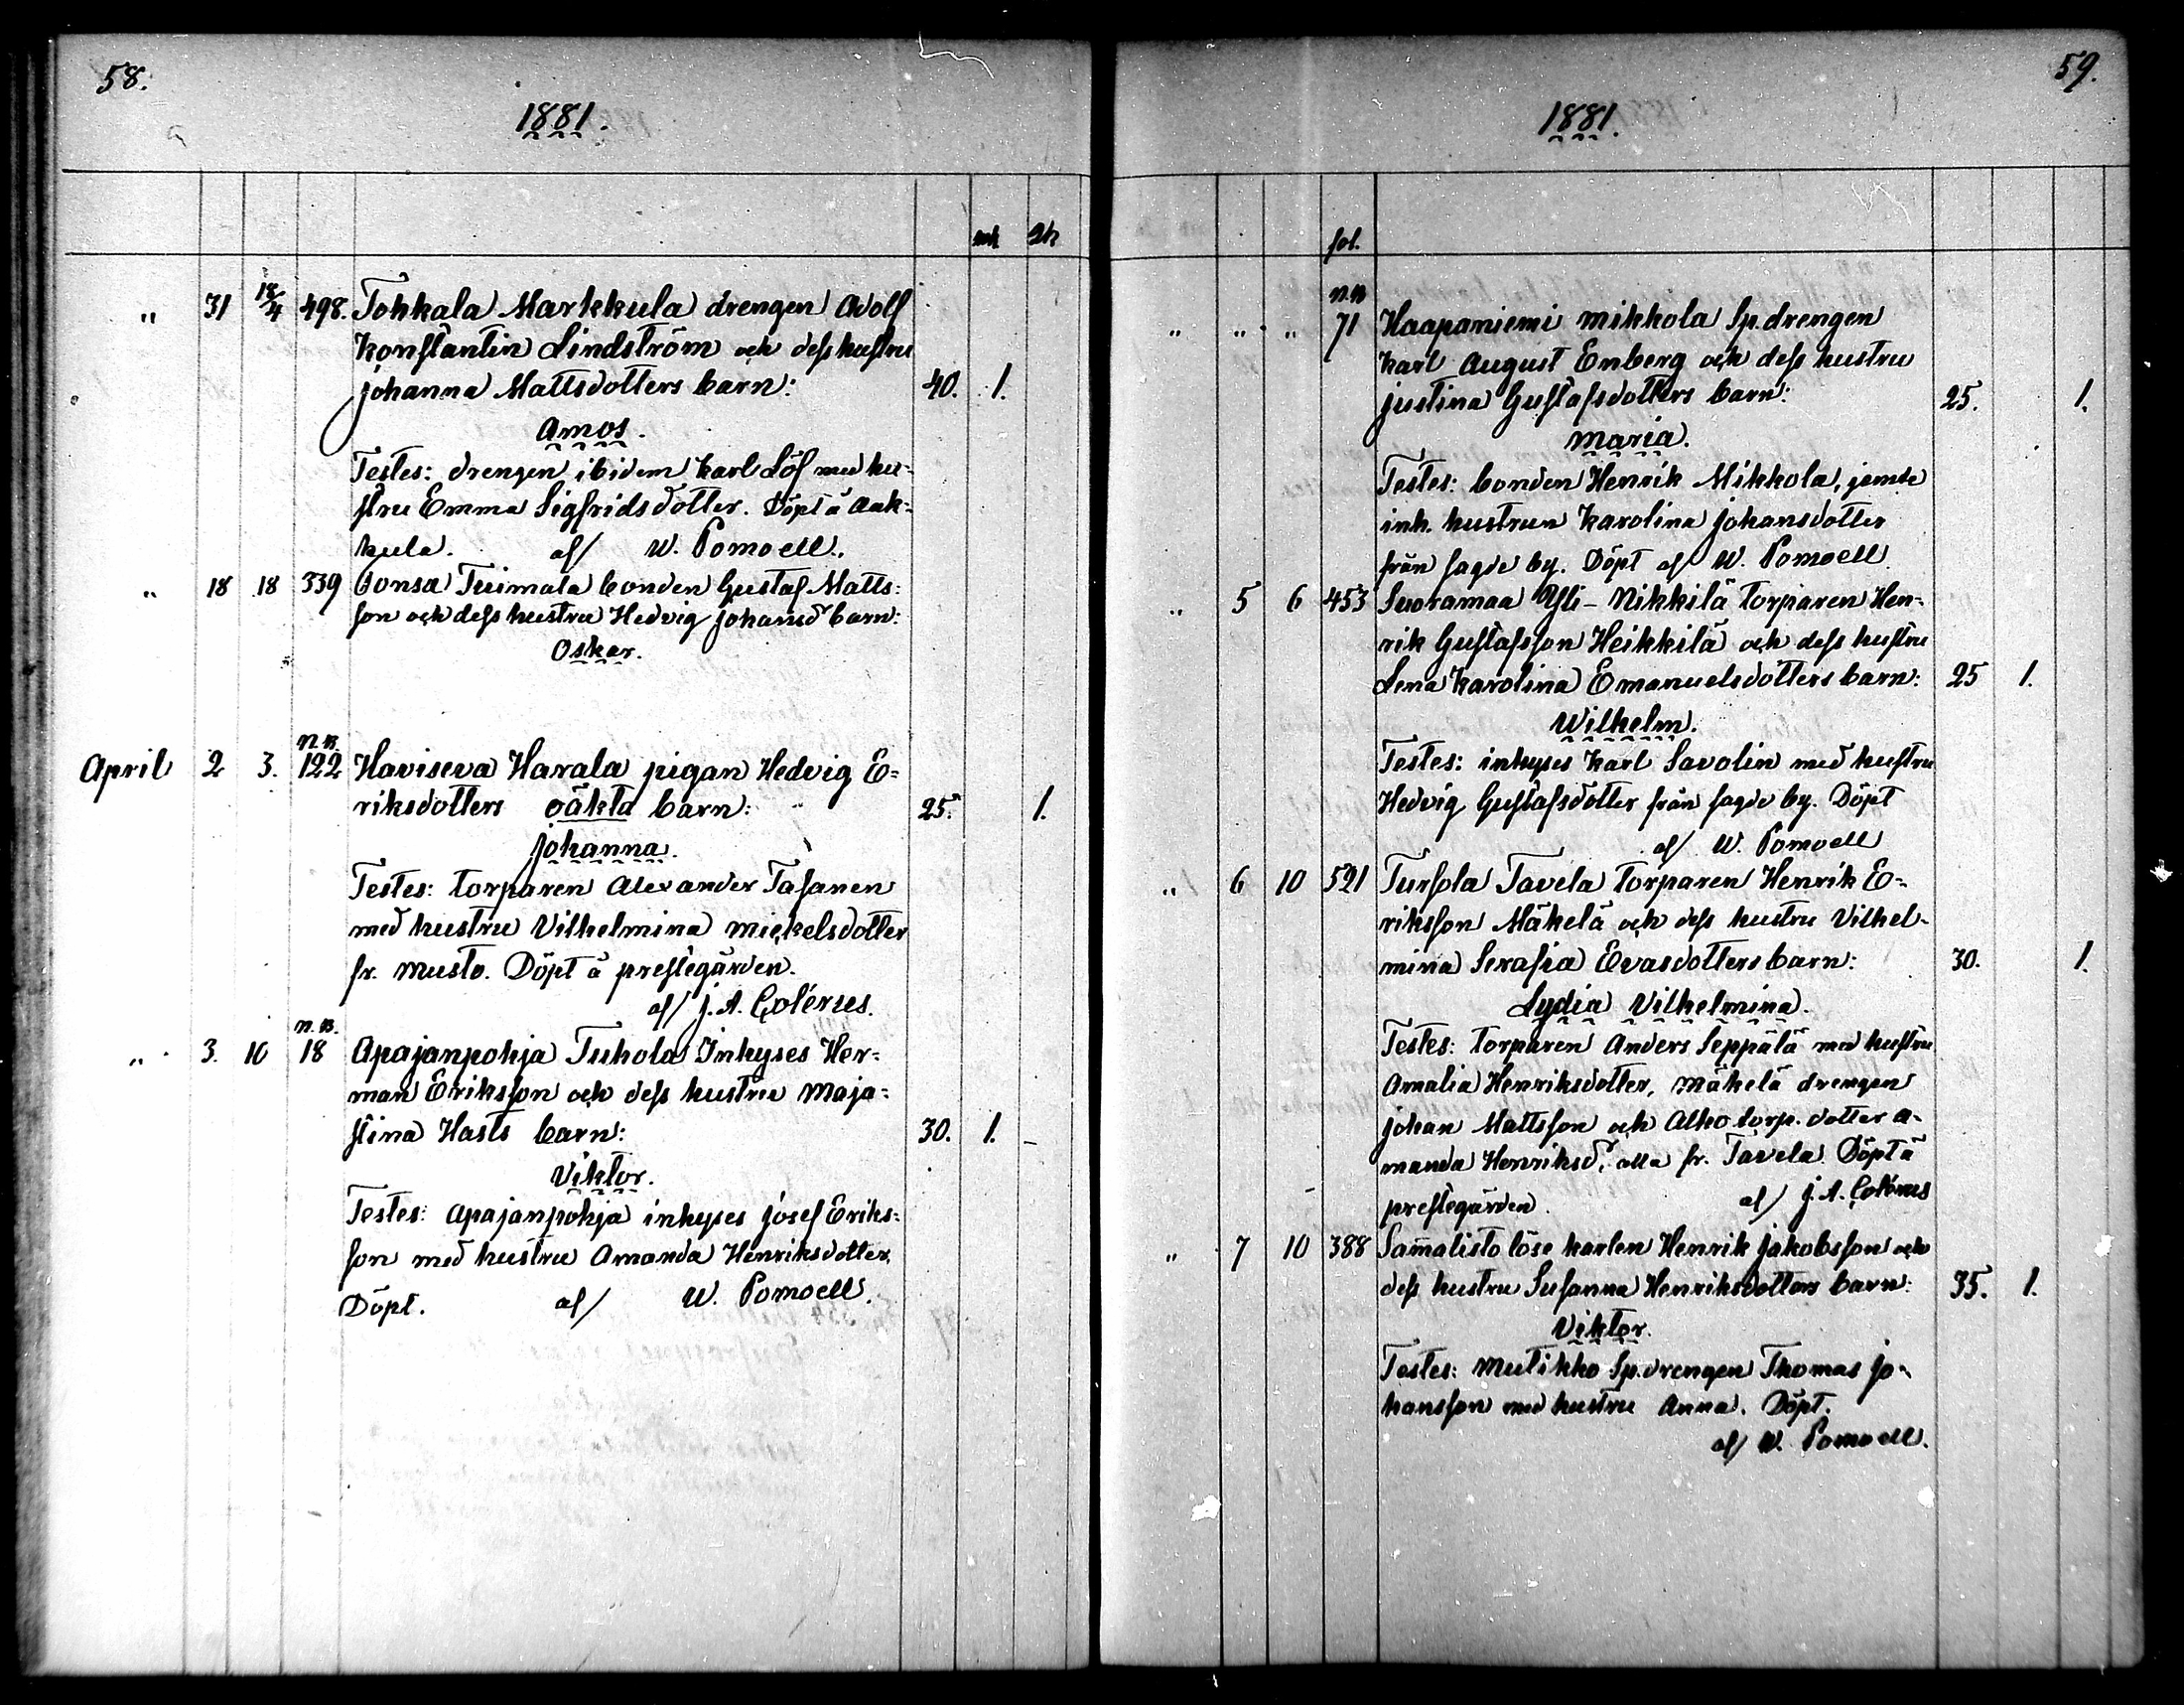 58.
1881.
mk qk
„ 31 18/4 498. Tohkala Markkula drengen Adolf
Konstantin Lindström och dess hustru
Johanna Mattsdotters barn: 40. 1.
Amos.
Testes: drengen ibidem Karl Löf med hu-
stru Emma Sigfridsdotter. Döpt å
kula. af W. Pomoell.
„ 18 18 339 Tuimala bonden Gustaf Matts-
son och dess hustru Hedvig Johansd barn:
Oskar.
n.B.
April 2 3. 122 Haviseva Harala pigan Hedvig E-
riksdotters oäkta barn: 25. 1.
Johanna.
Testes: torparen Alexander Tasanen
med hustru Vilhelmina Mickelsdotter
fr. Musto. Döpt å prestegården.
af J. A. Colérus.
n.B.
„ 3. 10 18 Apajanpohja Tuhola Inhyses Her-
man Eriksson och dess hustru Maja-
stina Hasts barn: 30. 1. -
Viktor.
Testes: Apajanpohja inhyses Josef Eriks-
son med hustru Amanda Henriksdotter.
Döpt. af W. Pomoell.
59.
1881.
fol.
n.B
„ „ „ 71 Haapaniemi Mikkola Sp.drengen
Karl August Enberg och dess hustru
Justina Gustafsdotters barn: 25. 1.
Maria.
Testes: bonden Henrik Mikkola, jemte
inh. hustrun Karolina Johansdotter
från sagde by. Döpt af W. Pomoell
„ 5 6 453 Suoramaa Yli-Nikkilä torparen Hen-
rik Gustafsson Heikkilä och dess hustru
Lena Karolina Emanuelsdotters barn: 25 1.
Wilhelm.
Testes: inhyses Karl Savolin med hustru
Hedvig Gustafsdotter från sagde by. Döpt
af W. Pomoell
„ 6 10 521 Tursola Tavela torparen Henrik E-
riksson Mäkelä och dess hustru Vilhel-
mina Serafia Evasdotters barn: 30. 1.
Lydia Vilhelmina.
Testes: torparen Anders Seppälä med hustru
Amalia Henriksdotter, Mäkelä drengen
Johan Mattsson och Alho torp. dotter A-
manda Henriksd, alla fr. Tavela. Döpt å
prestegården. af J. A. Colérus
„ 7 10 388 Sammalisto löse karlen Henrik Jakobsson och
dess hustru Susanna Henriksdotters barn: 35. 1.
Viktor.
Testes: Mutikko Sp.drengen Thomas Jo-
hansson med hustru Anna. Döpt.
af W. Pomoell.